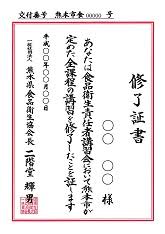 交付番号 熊本市食 00000 号
修了証書
○○ ○○ 様
あなたは食品衛生責任者講習会において熊本市が
定めた全課程の講習を修了したことを証します
平成○○年○○月○○日
一般社団法人
熊本県食品衛生協会長 二階堂 輝男